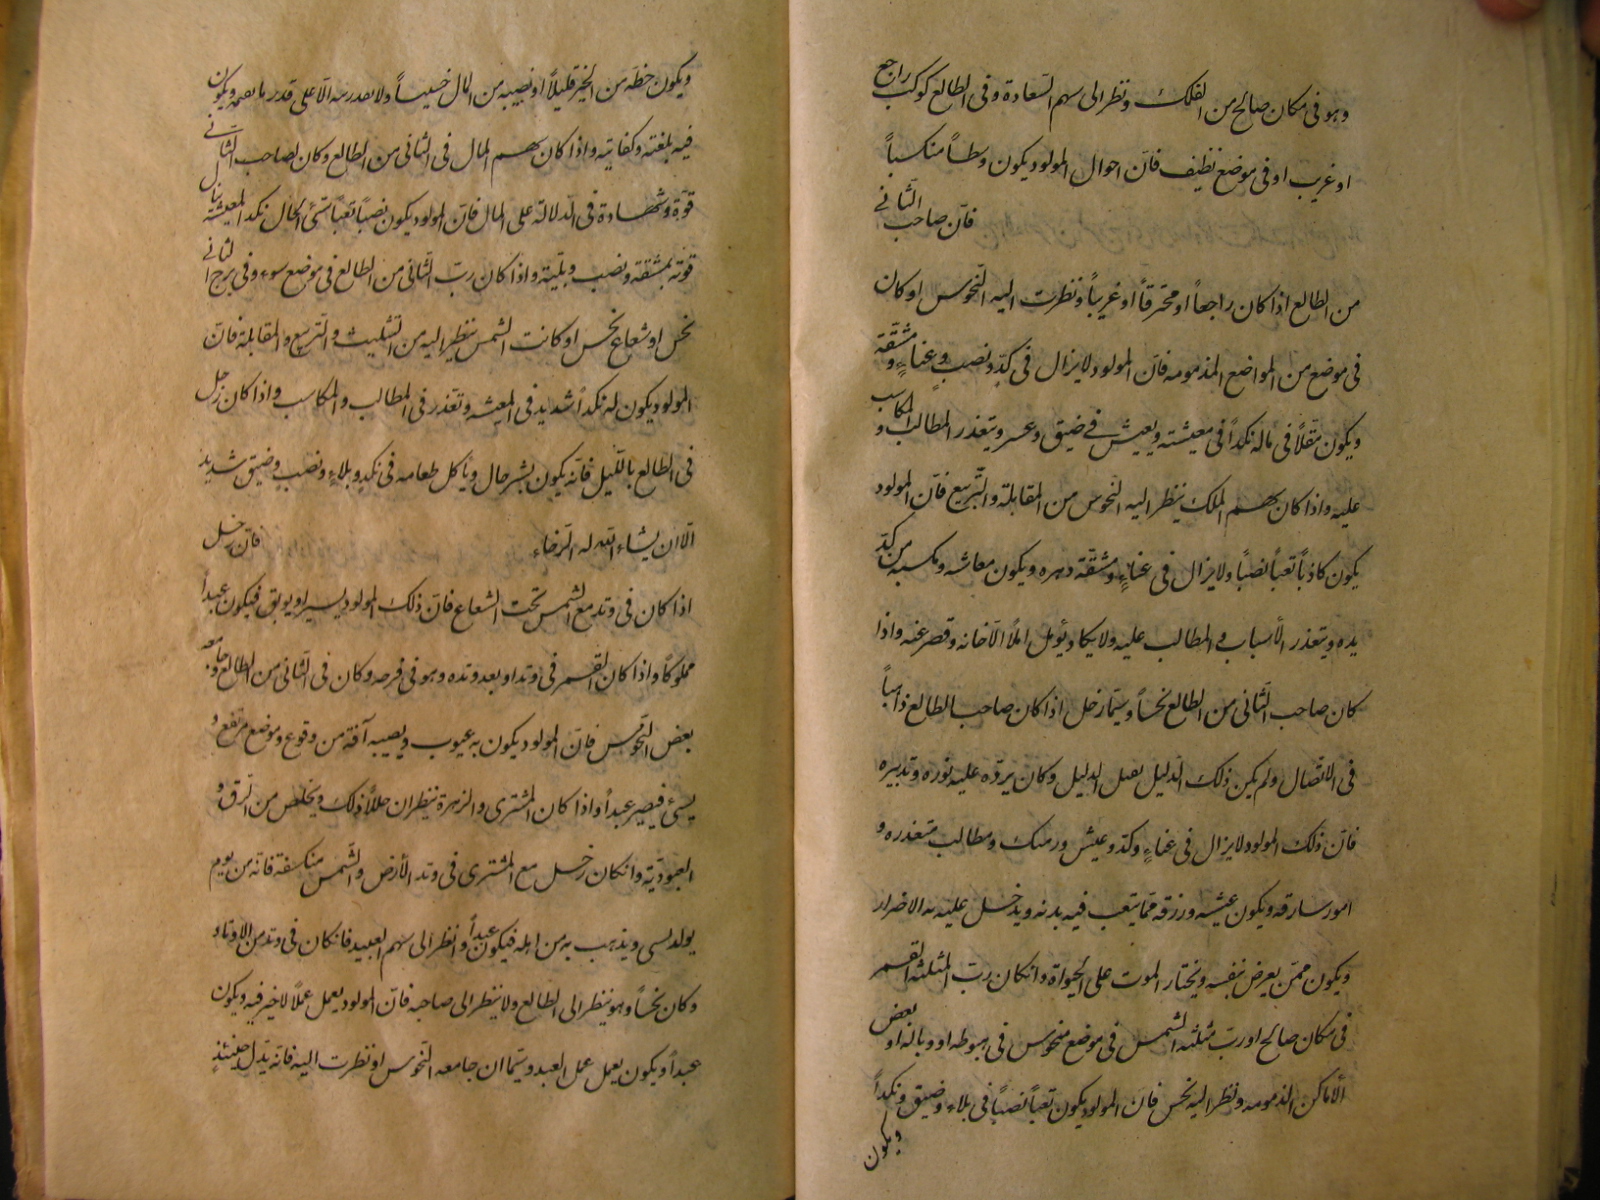 وهو فى مكان صالح من الفلك ونظر الى سهم السّعادة وفى الطالع كوكب راجع
او غريب او فى موضع نظيف فانّ احوال المولود يكون وسطاً منكسباً
فانّ صاحب الثّانى
من الطالع اذا كان راجعاً او محترقاً او غريباً ونظرت اليه النّحوس او كان
فى موضع من المواضع المذمومه فانّ المولود لا يزال فى كدّ ونصب وعناءٍ ومشقّة
ويكون مقلّاً فى ماله نكداً فى معيشته ويعيش فى ضيق وعسر ويتعذر المطالب والمكاسب
عليه واذا كان سهم الملك ينظر اليه النحوس من المقابلة والتّربيع فانّ المولود
يكون كاذباً تعباً نصباً ولا يزال فى عناءٍ ومشقّة دهره ويكون معاشه ومكسبه من كدّ
يده ويتعذر الأسباب فى المطالب عليه ولا يكاد يؤمل املاً الّا خانه وقصر عنه واذا
كان صاحب الثّانى من الطالع نحساً وسيّما زحل اذا كان صاحب الطالع ذاهباً
فى الاتصال ولم يكن ذلك الدليل يقبل الدليل وكان يردّه عليه نوره وتدبيره
فانّ ذلك المولود لا يزال فى عناءٍ وكدّ وعيش ورضنك ومطالب متعذره و
امور سارقه ويكون عيشه ورزقه ممّا يتعب فيه بدنه ويدخل عليه به الاضرار
ويكون ممّن يعرض بنفسه ويختار الموت على الحيواة وان كان ربّ المثلثه القمر
فى مكان صالح او ربّ مثلثه الشمس فى موضع منحوس فى هبوطه او وباله او بعض
الأماكن المذمومه ونظر اليه نحس فانّ المولود يكون تعباً نصباً فى بلاء وضيق ونكداً
ويكون
ويكون حظّه من الخير قليلاً او نصيبه من المال خسيساً ولا الّا على قدر ويكون
فيه بلغته وكفايته واذا كان سهم المال فى الثّانى من الطالع وكان لصاحب الثّانى
قوّة وشهادة فى الدّلالة على المال فانّ المولود يكون نصباً تعباً سّئ الحال نكد المعيشة ينال
قوته بمشقّة ونصب وبليّة واذا كان ربّ الثّانى من الطالع فى موضع سوء وفى برج الثانى
نحس او شعاع نحس او كانت الشمس ينظر اليه من التثليث والتّربيع والمقابلة فانّ
المولود يكون له نكداً شديد فى المعيشه وتعذر فى المطالب والمكاسب واذا كان زحل
فى الطالع بالّليل فانّه يكون بشر حال ويأكل طعامه فى نكدٍ وبلاءٍ ونصب وضيق شديد
الّا ان يشاء اللّه له الرّخاء فانّ زحل
اذا كان فى وتد مع الشمس تحت الشعاع فانّ ذلك المولود يسير او يوبق فيكون عبداً
مملوكاً واذا كان القمر فى وتد او بعد وتده وهو فى فرحه وكان فى الثّانى من الطالع وجامعه
بعض النّحوس فانّ المولود يكون به عيوب ويصيبه آفة من وقوع وموضع مرتفع و
يسبئ فيصير عبداً واذا كان المشترى والزهرة ينظران حللاً ذلك ويخلص من الرّق و
العبوديّة وان كان زحل مع المشترى فى وتد الأرض والشّمس منكسفة فانّه من يوم
يولد يسبى ويذهب به من اهله فيكون عبداً وانظر الى سهم العبيد فان كان فى وتد من الاوتاد
وكان نحساً وهو ينظر الى الطالع ولا ينظر الى صاحبه فانّ المولود يعمل عملاً لا خير فيه ويكون
عبداً ويكون يعمل عمل العبد وسيّما ان جامعه النّحوس او نظرت اليه فانّه يدّل حينئذٍ